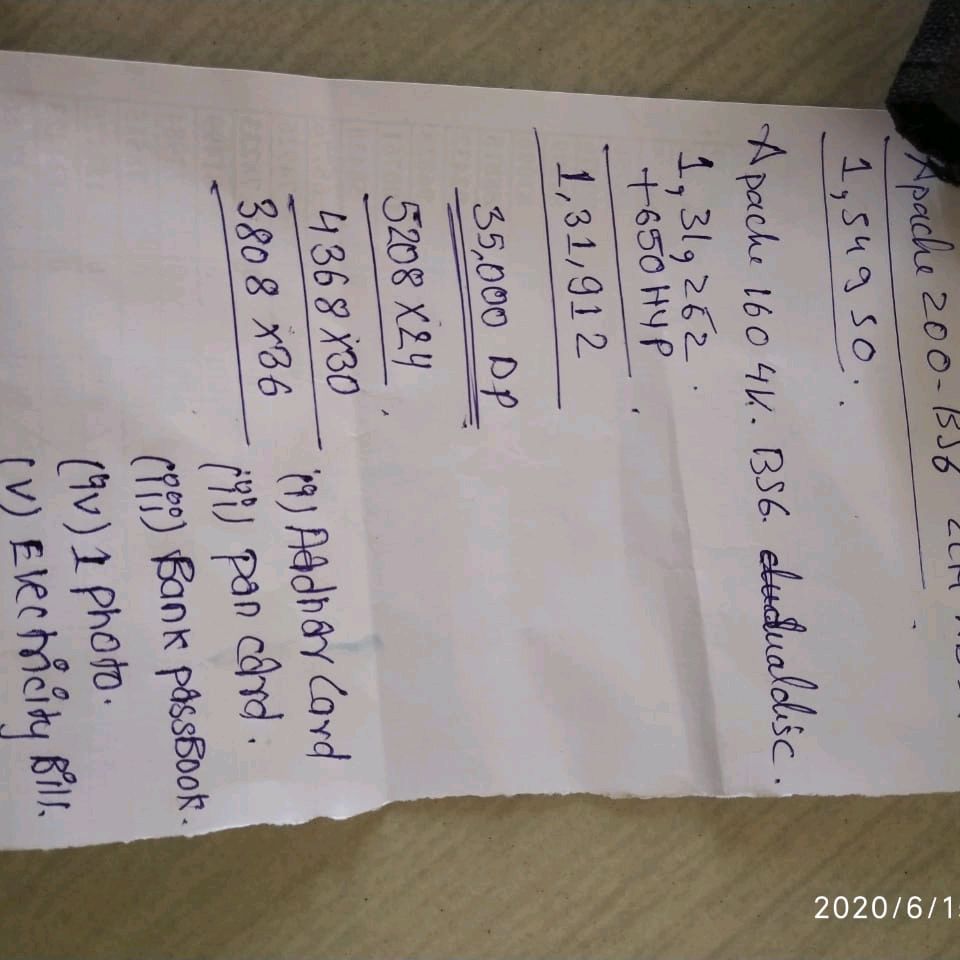 Apache 200-BS6
1,54950.
Apache 160 4V. BS6. dualdisc.
1,31,262.
+650 HYP
1,31,912
35,000 DP
5208 X24
4368 X30
3808 X36
(i) Aadhar Card
(ii) pan card.
(iii) Bank passBook.
(iv) 1 photo.
(v) Electricity Bill.
2020/6/15